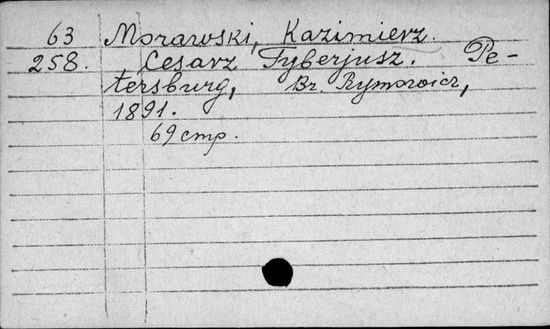 63 Morawski, Kazimierz.
258. Cesarz Tyberjusz. Pe-
tersburg, Br. Rymowicz,
1891.
69 cmp.